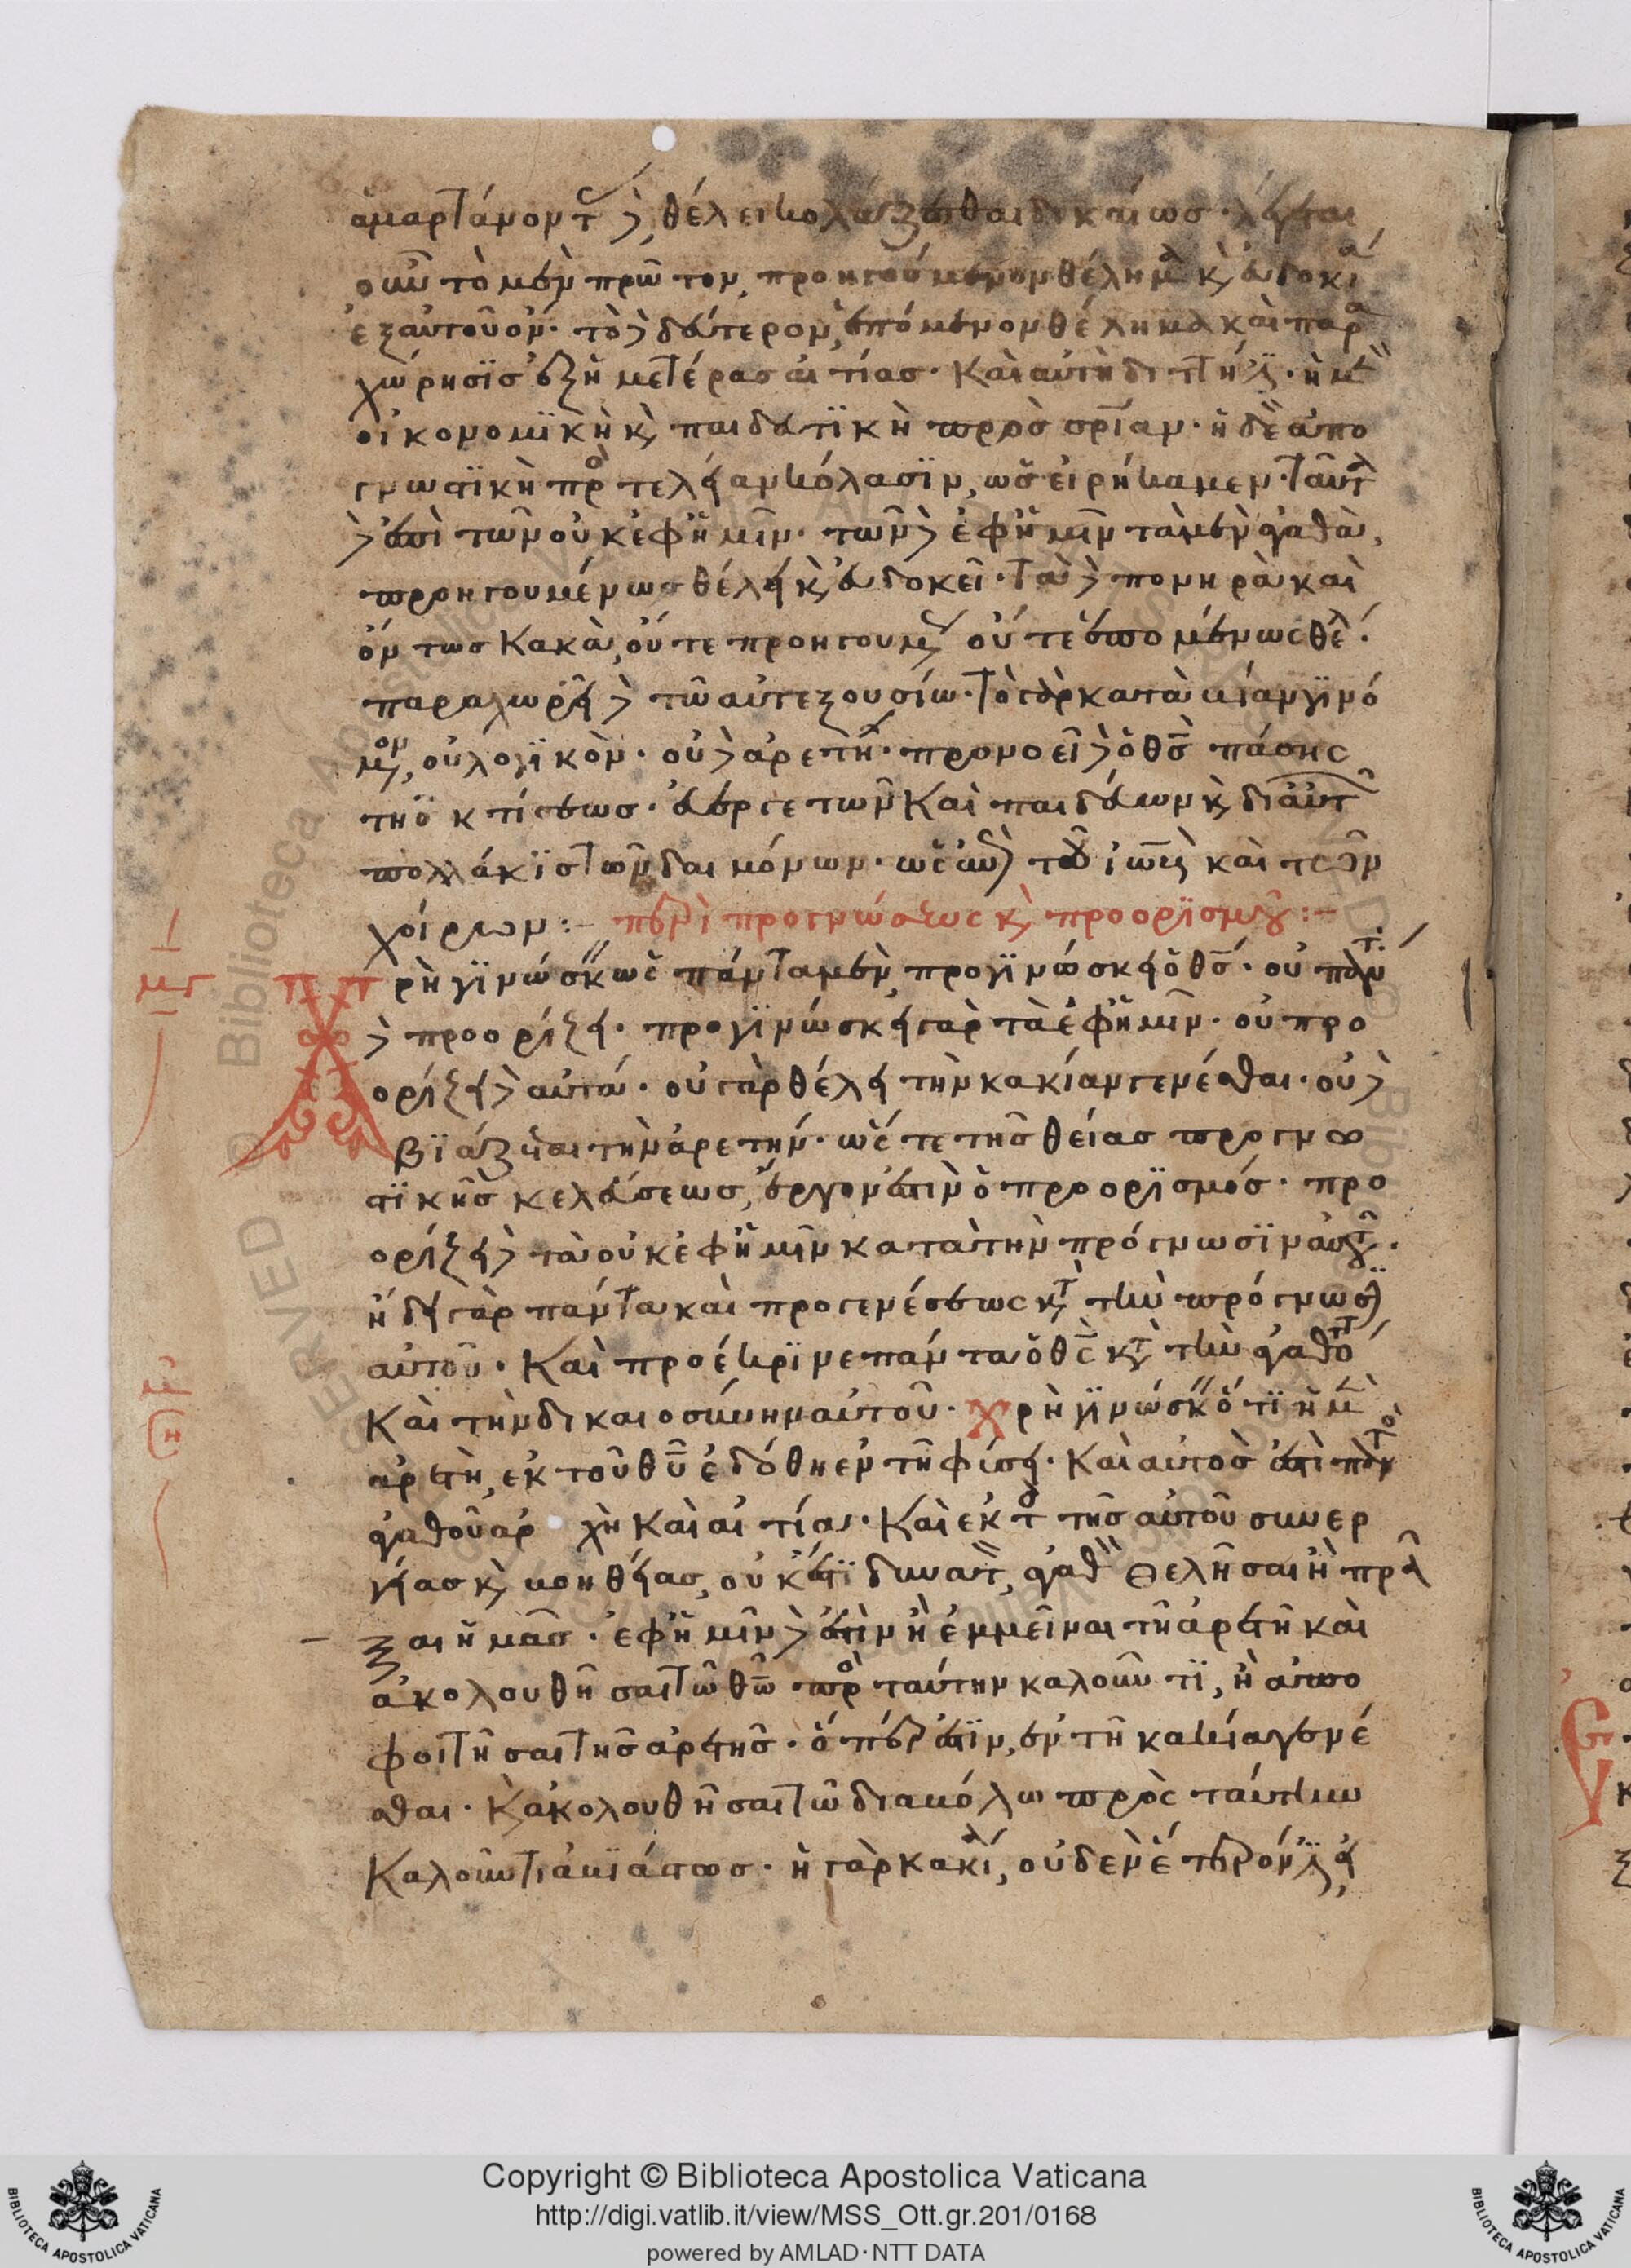 ἁμαρτάνοντας δὲ, θέλει κολάζεσθαι δικαίως· λέγεται
οὖν τὸ μὲν πρῶτον, προηγούμενον θέλημα κ εὐδοκία
ἐξ αὐτοῦ ὄν· τὸ δὲ δεύτερον, ἑπόμενον θέλημα καὶ παρα
χώρησϊς ἐξ ἡμετέρας αἰτίας· Καὶ αὐτὴ διττή· ἡ μὲν
οἰκονομϊκὴ κ παιδευτϊκὴ πρὸς σρίαν· ἡ δὲ ἀπο
γνωστϊκὴ πρὸς τελείαν κόλασϊν, ὡς εἰρήκαμεν· Ταῦτα
δὲ ἐπὶ τῶν οὐκ ἐφ ἡμῖν· τῶν δὲ ἐφ ἡμῖν τὰ μὲν ἀγαθὰ,
προηγουμένως θέλει κ εὐδοκεῖ· Τὰ δὲ πονηρὰ καὶ
ὄντως Κακὰ, οὔτε προηγουμένως οὔτε ἑπομένως θέλει·
παραχωρεῖ δὲ τῶ αὐτεξουσίω· Τὸ γὰρ κατὰ βίαν γϊνό
μενον, οὐ λογϊκὸν· οὐδὲ ἀρετὴ· προνοεῖ δὲ ὁ θς πάσης
τῆς κτίσεως· εὐεργετῶν Καὶ παιδεύων κ διὰ αὐτῶν
πολλάκϊς Τῶν δαιμόνων· ὡς ἐπὶ τοῦ ἰὼβ καὶ τῶν
χοίρων:– περὶ προγνώσεως κ προορϊσμοῦ:–
Χρὴ γϊνώσκειν ὡς πάντα μὲν προγϊνώσκει ὁ θς· οὐ πάντα
δὲ προορίζει· προγϊνώσκει γὰρ τὰ ἐφ ἡμῖν· οὐ προ
ορίζει δὲ αὐτά· οὐ γὰρ θέλει τὴν κακίαν γενέσθαι· οὐδὲ
βϊάζεται τὴν ἀρετήν· ὥστε τῆς θείας προγνω
στϊκῆς κελεύσεως, ἔργον ἐστὶν ὁ προορϊσμός· προ
ορίζει δὲ τὰ οὐκ ἐφ ἡμῖν κατὰ τὴν πρόγνωσϊν αὐτοῦ·
ἤδη γὰρ πάντα καὶ προγενέσεως κατὰ τὴν πρόγνωσιν
αὐτοῦ· Καὶ προέκρϊνε πάντα ὁ θς κατὰ τὴν ἀγαθότητα
Καὶ τὴν δικαιοσύνην αὐτοῦ· χρὴ γϊνώσκειν ὅτϊ ἡ μὲν
ἀρετὴ, ἐκ τοῦ θυ ἐδόθη ἐν τῆ φύσει· Καὶ αὐτὸς ἐστὶ παντὸς
ἀγαθοῦ ἀρχὴ Καὶ αἰτία· Καὶ ἐκτὸς τῆς αὐτοῦ συνερ
γείας κ βοηθείας, οὐκ ἔστϊ δυνατὸν, ἀγαθὸν θελῆσαι ἢ πρᾶ
ξαι ἡμᾶς· ἐφ ἡμῖν δὲ ἐστὶν ἢ ἐμμεῖναι τῆ ἀρετῆ καὶ
ἀκολουθῆσαι Τῶ θω πρὸς ταύτην καλοῦντϊ, ἢ ἀπο
φοιτῆσαι Τῆς ἀρετῆς· ὅπερ ἐστϊν, ἐν τῆ κακία γενέ
σθαι· Κ ἀκολουθῆσαι Τῶ διαβόλω πρὸς ταύτην
Καλοῦντι ἀβϊάστως· ἡ γὰρ κακία, οὐδὲν ἕτερόν ἐστϊν εἰ